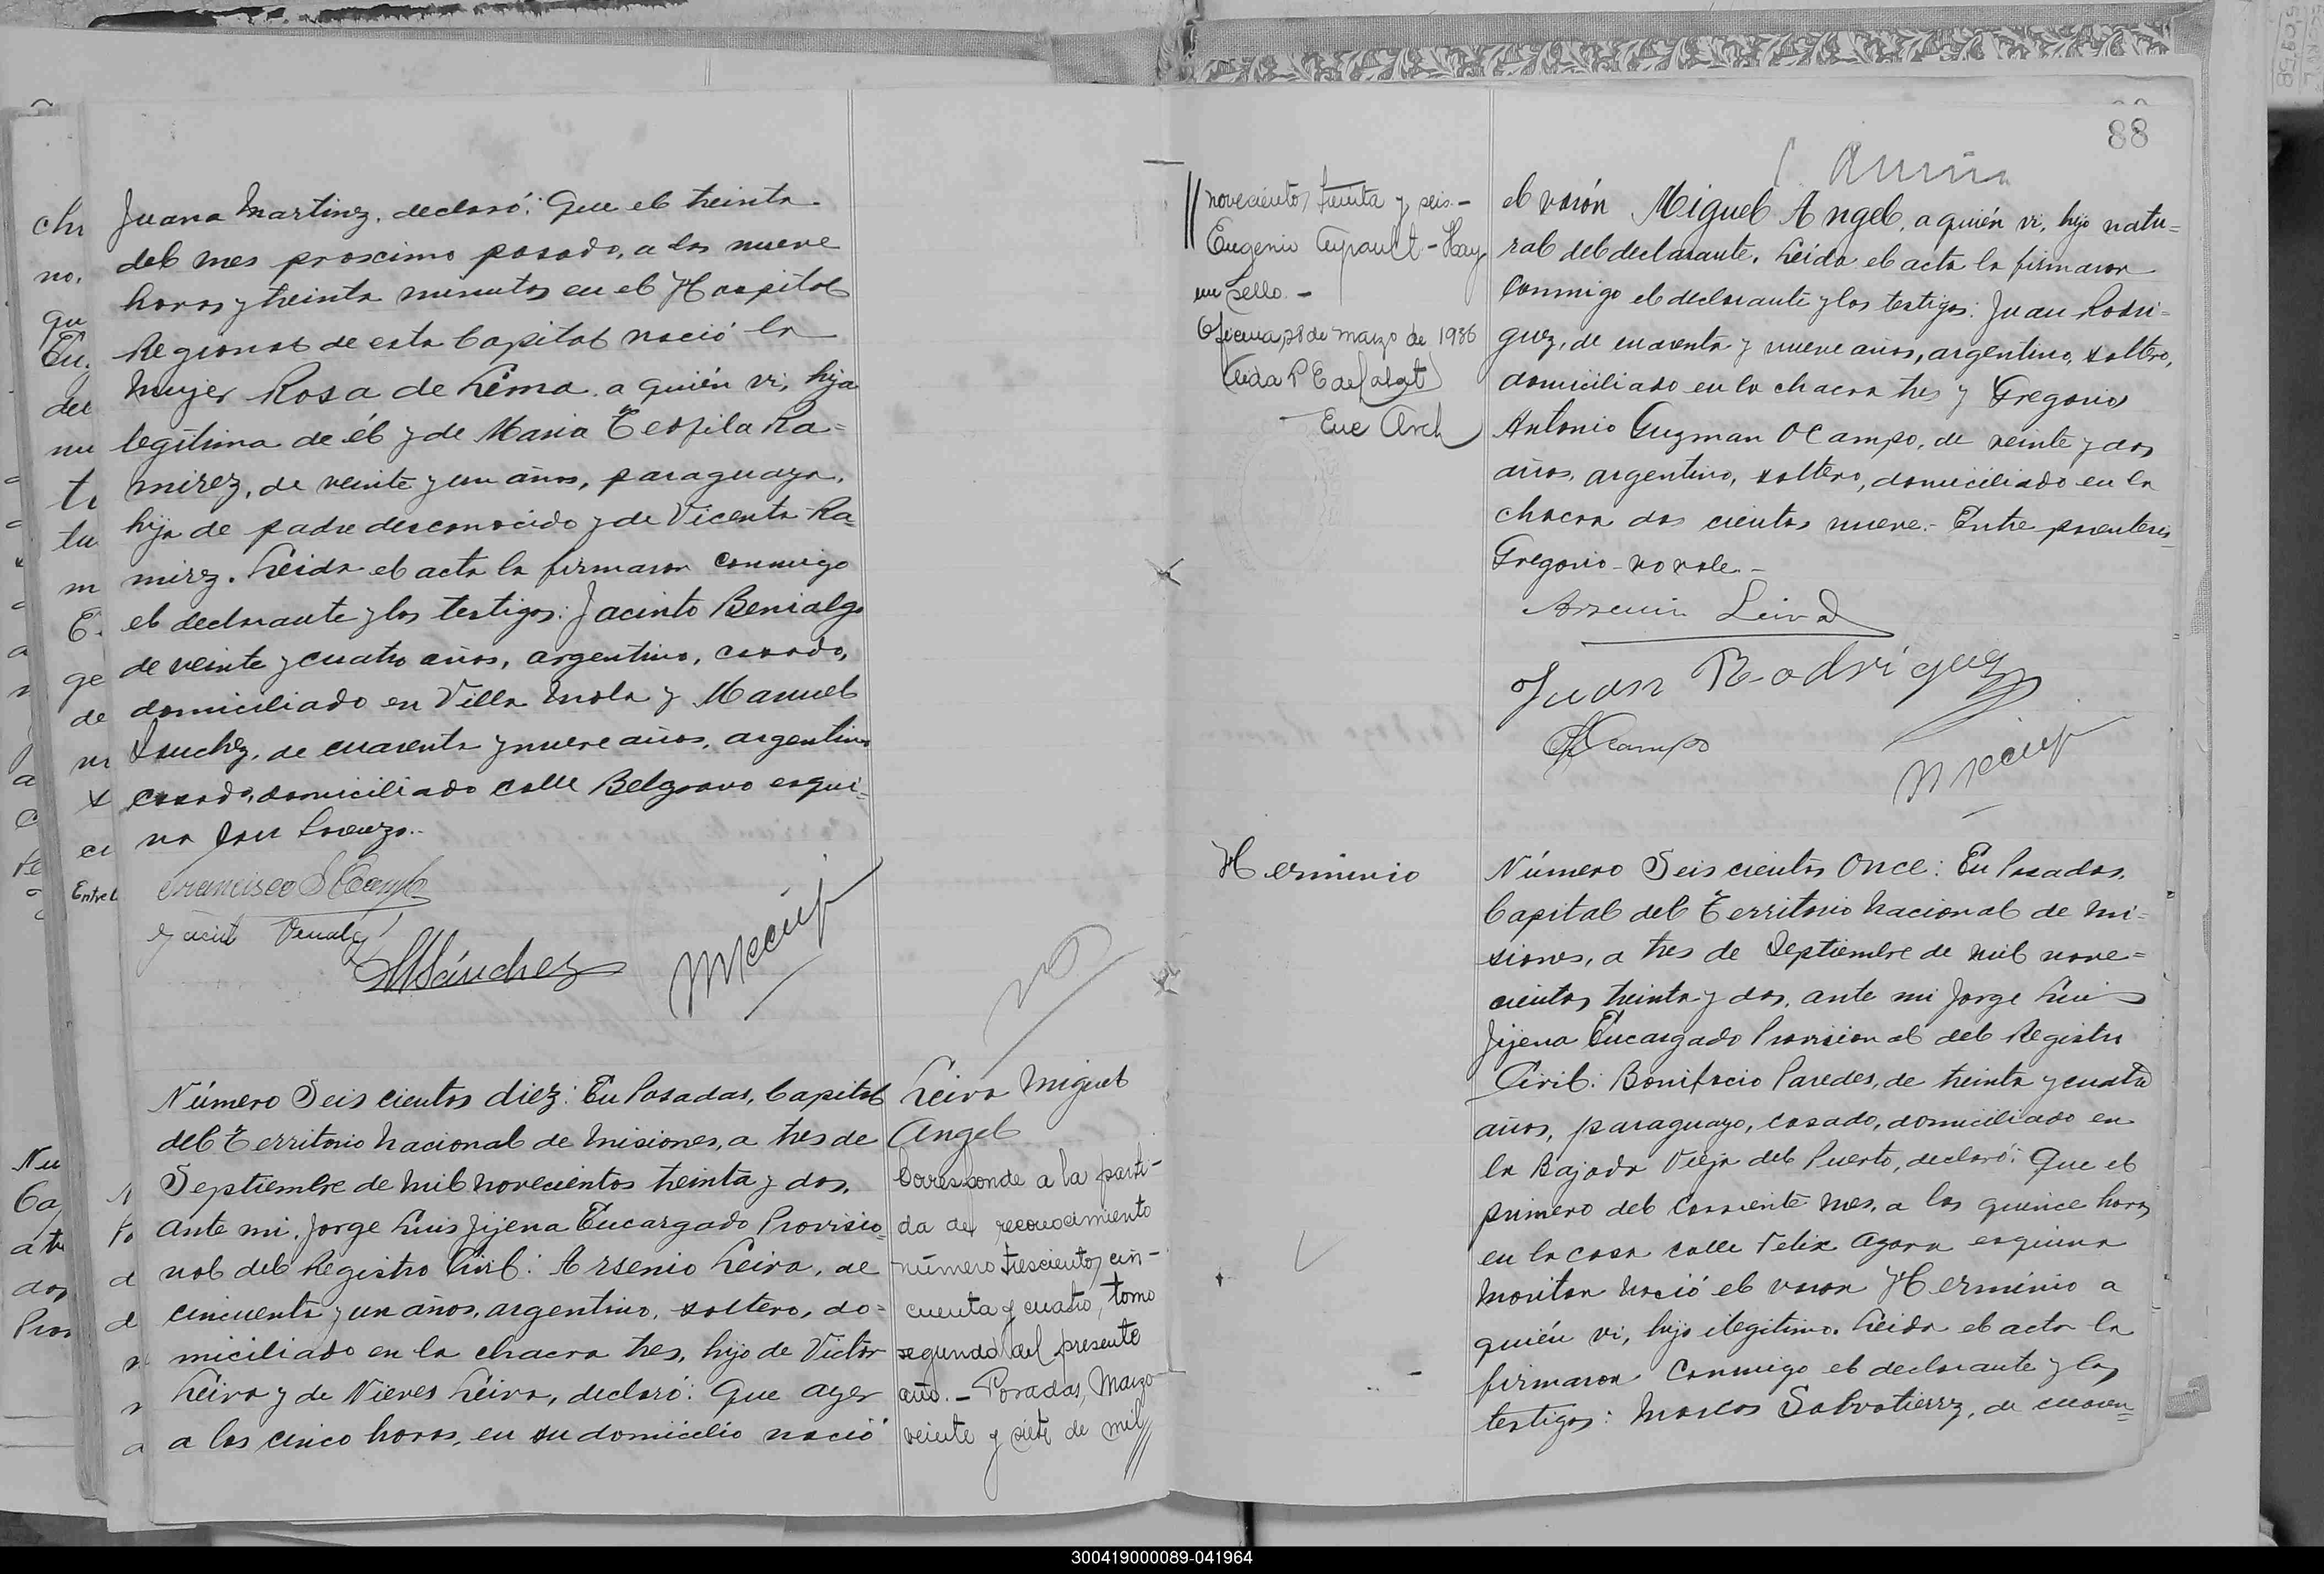 Juana Martinez, declaró: Que el treinta
del mes proscimo pasado, a las nueve
horas y treinta minutos en el Hospital
Regional de esta Capital nació la
mujer Rosa de Lima a quién vi, hija
legitima de él y de Maria Teofila Ra=
mirez, de veinte y un años, paraguaya,
hija de padre desconocido y de Vicenta Ra=
mirez. Leida el acta la firmaron conmigo
el declarante y los testigos: Jacinto Benialgo
de veinte y cuatro años, argentino, casado,
domiciliado en Villa Mola y Manuel
Sanchez, de cuarenta y nueve años, argentino
casado, domiciliado calle Belgrano esqui=
na San Lorenzo.-
MSánchez
Número Seis cientos diez: En Posadas, Capital
del Territorio Nacional de Misiones, a tres de
Septiembre de mil novecientos treinta y dos,
ante mi, Jorge Luis Jijena Encargado Provisio=
nal del Registro Civil: Arsenio Leiva, de
cincuenta y un años, argentino, soltero, do=
miciliado en la chacra tres, hijo de Victor
Leiva y de Nieves Leiva, declaró: Que ayer
a las cinco horas, en su domicilio nació
Leiva Miguel
Angel
Corresponde a la parti-
da de reconocimiento
número trescientos cin-
cuenta y cuatro, tomo
segundo del presente
año. - Posadas, Marzo
veinte y siete de mil//
88
//novecientos treinta y seis.-
Eugenio - Hay
un sello. -
Oficina, 28 de marzo de 1936
Enc Arch
el varón Miguel Angel, a quién vi, hijo natu=
ral del declarante. Leida el acta la firmaron
conmigo el declarante y los testigos: Juan Rodri=
guez, de cuarenta y nueve años, argentino, soltero,
domiciliado en la chacra tres y Gregorio
Antonio Guzman Ocampo, de veinte y dos
años, argentino, soltero, domiciliado en la
chacra dos cientos nueve.- Entre parentesis
Gregorio - no vale.-
Arsenio Leiva
Juan Rodriguez
Ocampo
Herminio
Número Seis cientos Once: En Posadas,
Capital del Territorio Nacional de Mi=
siones, a tres de Septiembre de mil nove=
cientos treinta y dos, ante mi Jorge Luis
Jijena Encargado Provisional del Registro
Civil: Bonifacio Paredes, de treinta y cuatro
años, paraguayo, casado, domiciliado en
la Bajada Vieja del Puerto, declaró: Que el
primero del corriente mes, a las quince horas
en la casa calle Felix Azara esquina
Moritan nació el varon Herminio a
quién vi, hijo ilegitimo. Leida el acta la
firmaron conmigo el declarante y los
testigos: Marcos Salvatierrz, de cuaren=
300419000089-041964